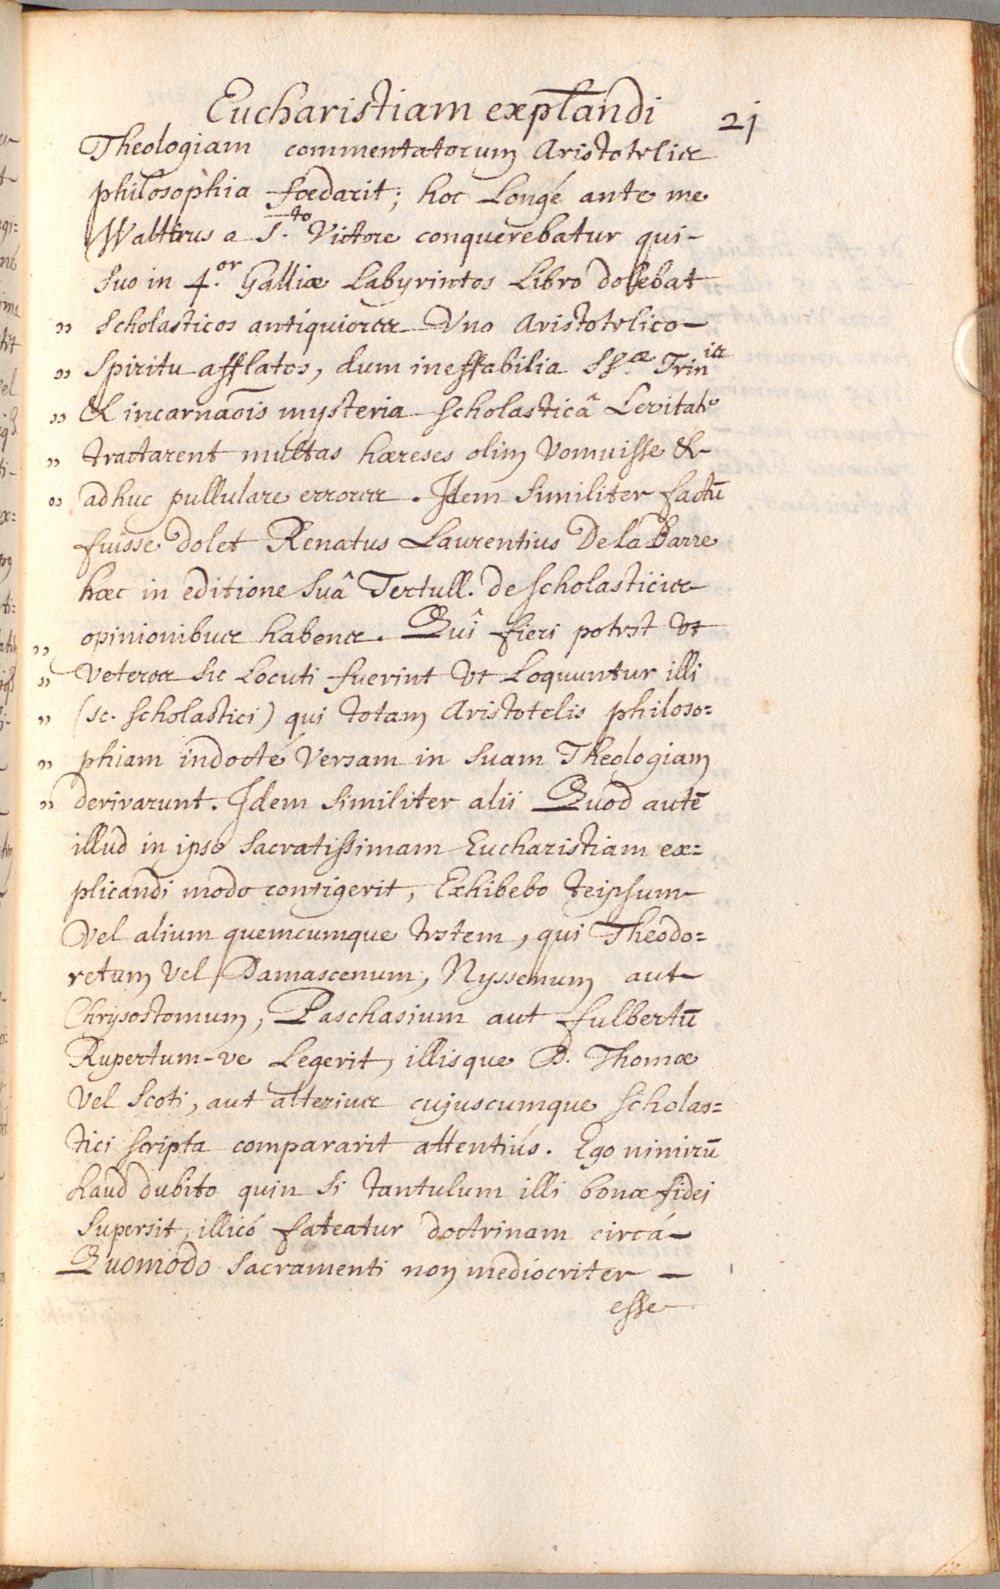 Eucharistiam expl̄andi 21
Theologiam commentatorum Aristotelis
philosophia fœdarit; hoc Longé ante me
Walterus a S.to Victore conquerebatur qui-
suo in 4.or Galliæ Labyrintos Libro dolebat
„ Scholasticos antiquiores Uno Aristotelico-
„ Spiritu afflatos, dum ineffabilia SS.æ Trin.is
„ & incarnaōis mysteria scholasticâ Levitate
„ tractarent multas hæreses olim Vomuisse &-
„ adhuc pullulare errores. Idem similiter factū
fuisse dolet Renatus Laurentius De la Barre
hæc in editione suâ Tertull. de scholasticis
opinionibus habens. Quî fieri potest Ut
„ Veteres sic Locuti fuerint Ut Loquuntur illi
„ (sc. scholastici) qui totam Aristotelis philoso=
„ phiam indocté Versam in suam Theologiam
„ derivarunt. Idem similiter alii Quod autē
illud in ipso sacratissimam Eucharistiam ex=
plicandi modo contigerit, Exhibebo teipsum
Vel alium quemcumque testem, qui Theodo=
retum Vel Damascenum, Nyssenum aut-
Chrysostomum, Paschasium aut fulbertū
Rupertum-ve Legerit, illisque D. Thomæ
Vel Scoti, aut alterius cujuscumque scholas=
tici scripta compararit attentiús. Ego nimirū
haud dubito quin si tantulum illi bonæ fidei
supersit, illicó fateatur doctrinam circá-
Quomodo sacramenti non mediocriter -
esse